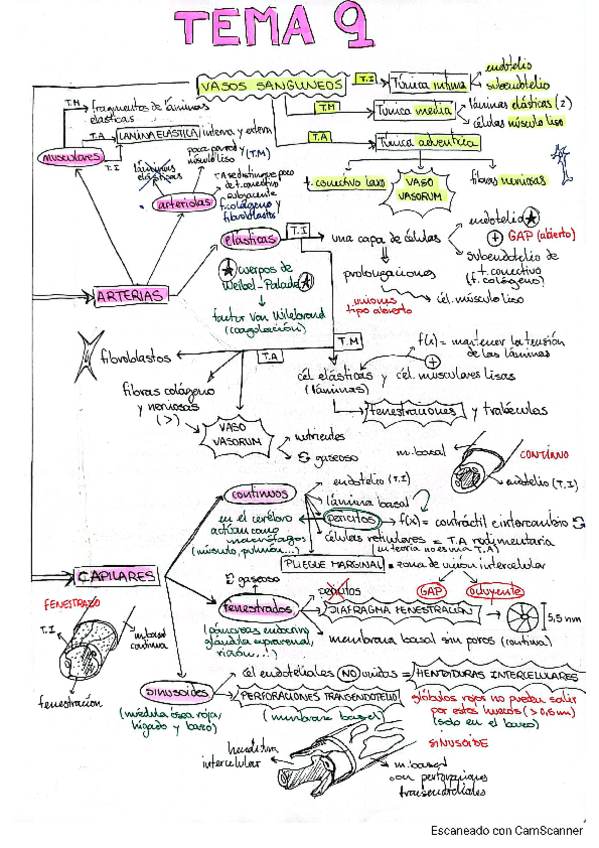 TEMA 9
VASOS SANGUNEOS
T.I
Túnica íntima
endotelio
subendotelio
T.M
Túnica media
láminas elásticas (2)
células músculo liso
T.A
Túnica adventicia
t. conectivo laxo
VASO
VASORUM
fibras nerviosas
T.M
fragmentos de láminas
elásticas
T.A
LAMINA ELÁSTICA interna y extern
T.I
musculares
láminas
elásticas
poca pared y
músculo liso
(T.M)
arteriolas
T.A se distingue poco
de t. conectivo
subyacente
t. colágeno y
fibroblastos
elásticas
T.I
una capa de células
endotelio
GAP (abierto)
subendotelio de
t. conectivo
(f. colágeno)
prolongaciones
uniones
tipo abierto
cél. músculo liso
cuerpos de
Weibel-Palade
factor Von Wilebrand
(coagulación)
ARTERIAS
T.M
f(x) = mantener la tensión
de las láminas
fibroblastos
T.A
cél. elásticas y cél. musculares lisas
(láminas)
fenestraciones y trabéculas
fibras colágeno
y nerviosas
(>)
VASO
VASORUM
nutrientes
gaseoso
m. basal
CONTINUO
endotelio (T.I)
continuos
endotelio (T.I)
lámina basal
pericitos
f(x) = contráctil e intercambio
en el cerebro
actúan como
macrófagos
(músculo, pulmón...)
células reticulares = T.A rudimentaria
(en teoría no es una T.A)
PLIEGUE MARGINAL = zona de unión intercelular
GAP
ocluyente
CAPILARES
gaseoso
fenestrados
pericitos
DIAFRAGMA FENESTRACIÓN
5,5 nm
(páncreas endocrin,
glándula suprarrenal,
riñón...)
membrana basal sin poros (continua)
FENESTRADO
T.I
m. basal
continua
fenestración
sinusoides
(médula ósea roja,
hígado y bazo)
cél endoteliales NO unidas = HENDIDURAS INTERCELULARES
PERFORACIONES TRANSENDOTELIO
(membrana basal)
glóbulos rojos no pueden salir
por estos huecos (> 0,5 m)
(solo en el bazo)
SINUSOIDE
hendidura
intercelular
m. basal
con perforaciones
Escaneado con CamScanner